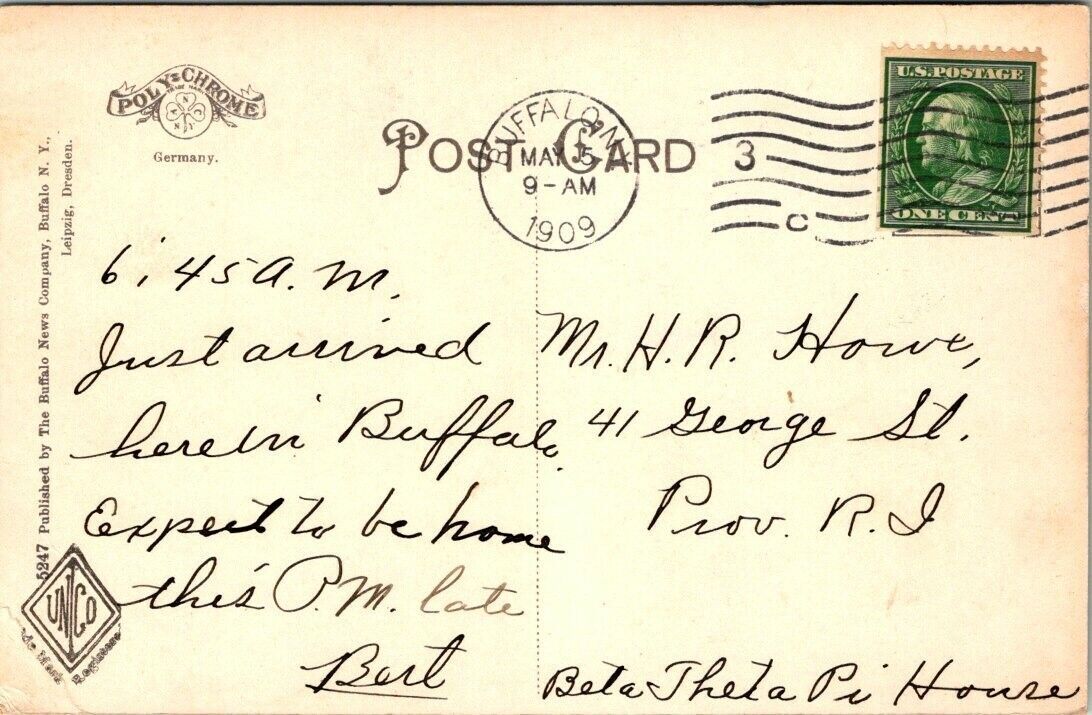 POLY-CHROME
TRADE MARK
A N C
N Y
Germany.
5247 Published by The Buffalo News Company, Buffalo N. Y.,
Leipzig, Dresden.
POST CARD
BUFFALO, N.Y.
MAY 5
9-AM
1909
3
C
U.S. POSTAGE
ONE CENT
6:45 A.M.
Just arrived
here in Buffalo.
Expect to be home
this P.M. late
Bert
Mr. H. R. Howe,
41 George St.
Prov. R. I
Beta Theta Pi House
UNCO